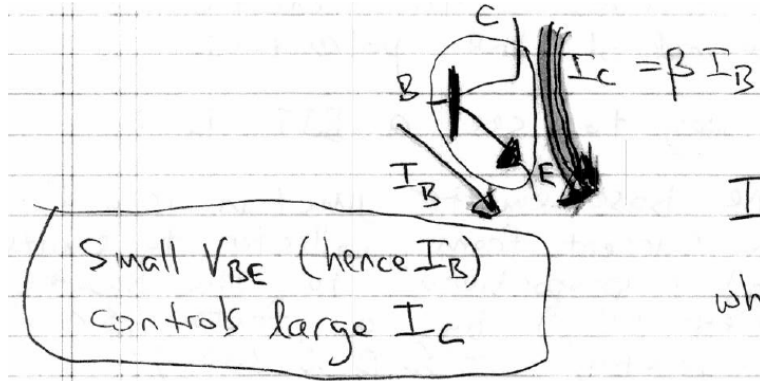 C
I_C = β I_B
B
E
I_B
I
Small V_BE (hence I_B)
wh
controls large I_C